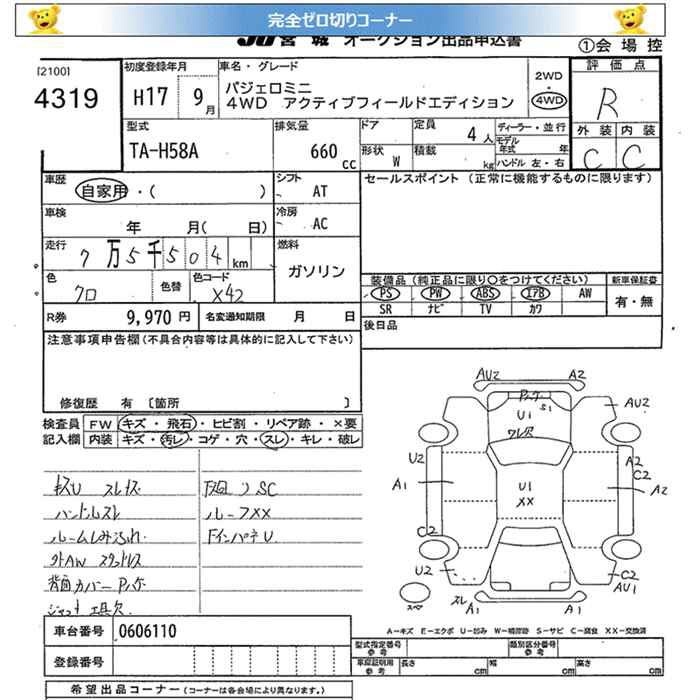 完全ゼロ切りコーナー
JU 宮城 オークション出品申込書
①会場控
[2100]
4319
初度登録年月
H17 9月
車名・グレード
パジェロミニ
4WD アクティブフィールドエディション
2WD
・
4WD
評価点
R
外装 内装
C C
型式
TA-H58A
排気量
660 cc
ドア
形状 W
定員 4人
積載 kg
ディーラー・並行
モデル年式 年
ハンドル 左・右
車歴
自家用・( )
シフト AT
車検
年 月( 日)
冷房 AC
走行
7万5千504km
燃料
ガソリン
色
クロ
色替
色コード
X42
R券 9,970円
名変通知期限 月 日
セールスポイント (正常に機能するものに限ります)
装備品(純正品に限り○をつけてください)
新車保証書
PS PW ABS エアB AW
SR ナビ TV カワ
有・無
後日品
注意事項申告欄(不具合内容等は具体的に記入して下さい)
修復歴 有 〔箇所 〕
検査員記入欄
FW キズ・飛石・ヒビ割・リペア跡・×要
内装 キズ・汚レ・コゲ・穴・スレ・キレ・破レ
キズU スレキズ
ハンドルスレ
ルームしみ汚れ
外AW スタッドレス
背面カバー P.ハゲ
ジャッキ 工具欠
下廻りSC
ルーフXX
Fインパネ U
AU2 A2
P.ハゲ
U1 S1
ワレ穴
AU2
U2
A1
U1
XX
A2
C2
A2
C2
U2
C2
AU1
スレ A1 A1
スペ
A-キズ E-エクボ U-凹み W-補修跡 S-サビ C-腐食 XX-交換済
車台番号 0606110
登録番号
型式指定番号 参考
類別区分番号 参考
車庫証明用 参考
長さ cm 幅 cm 高さ cm
希望出品コーナー(コーナーは各会場により異なります。)